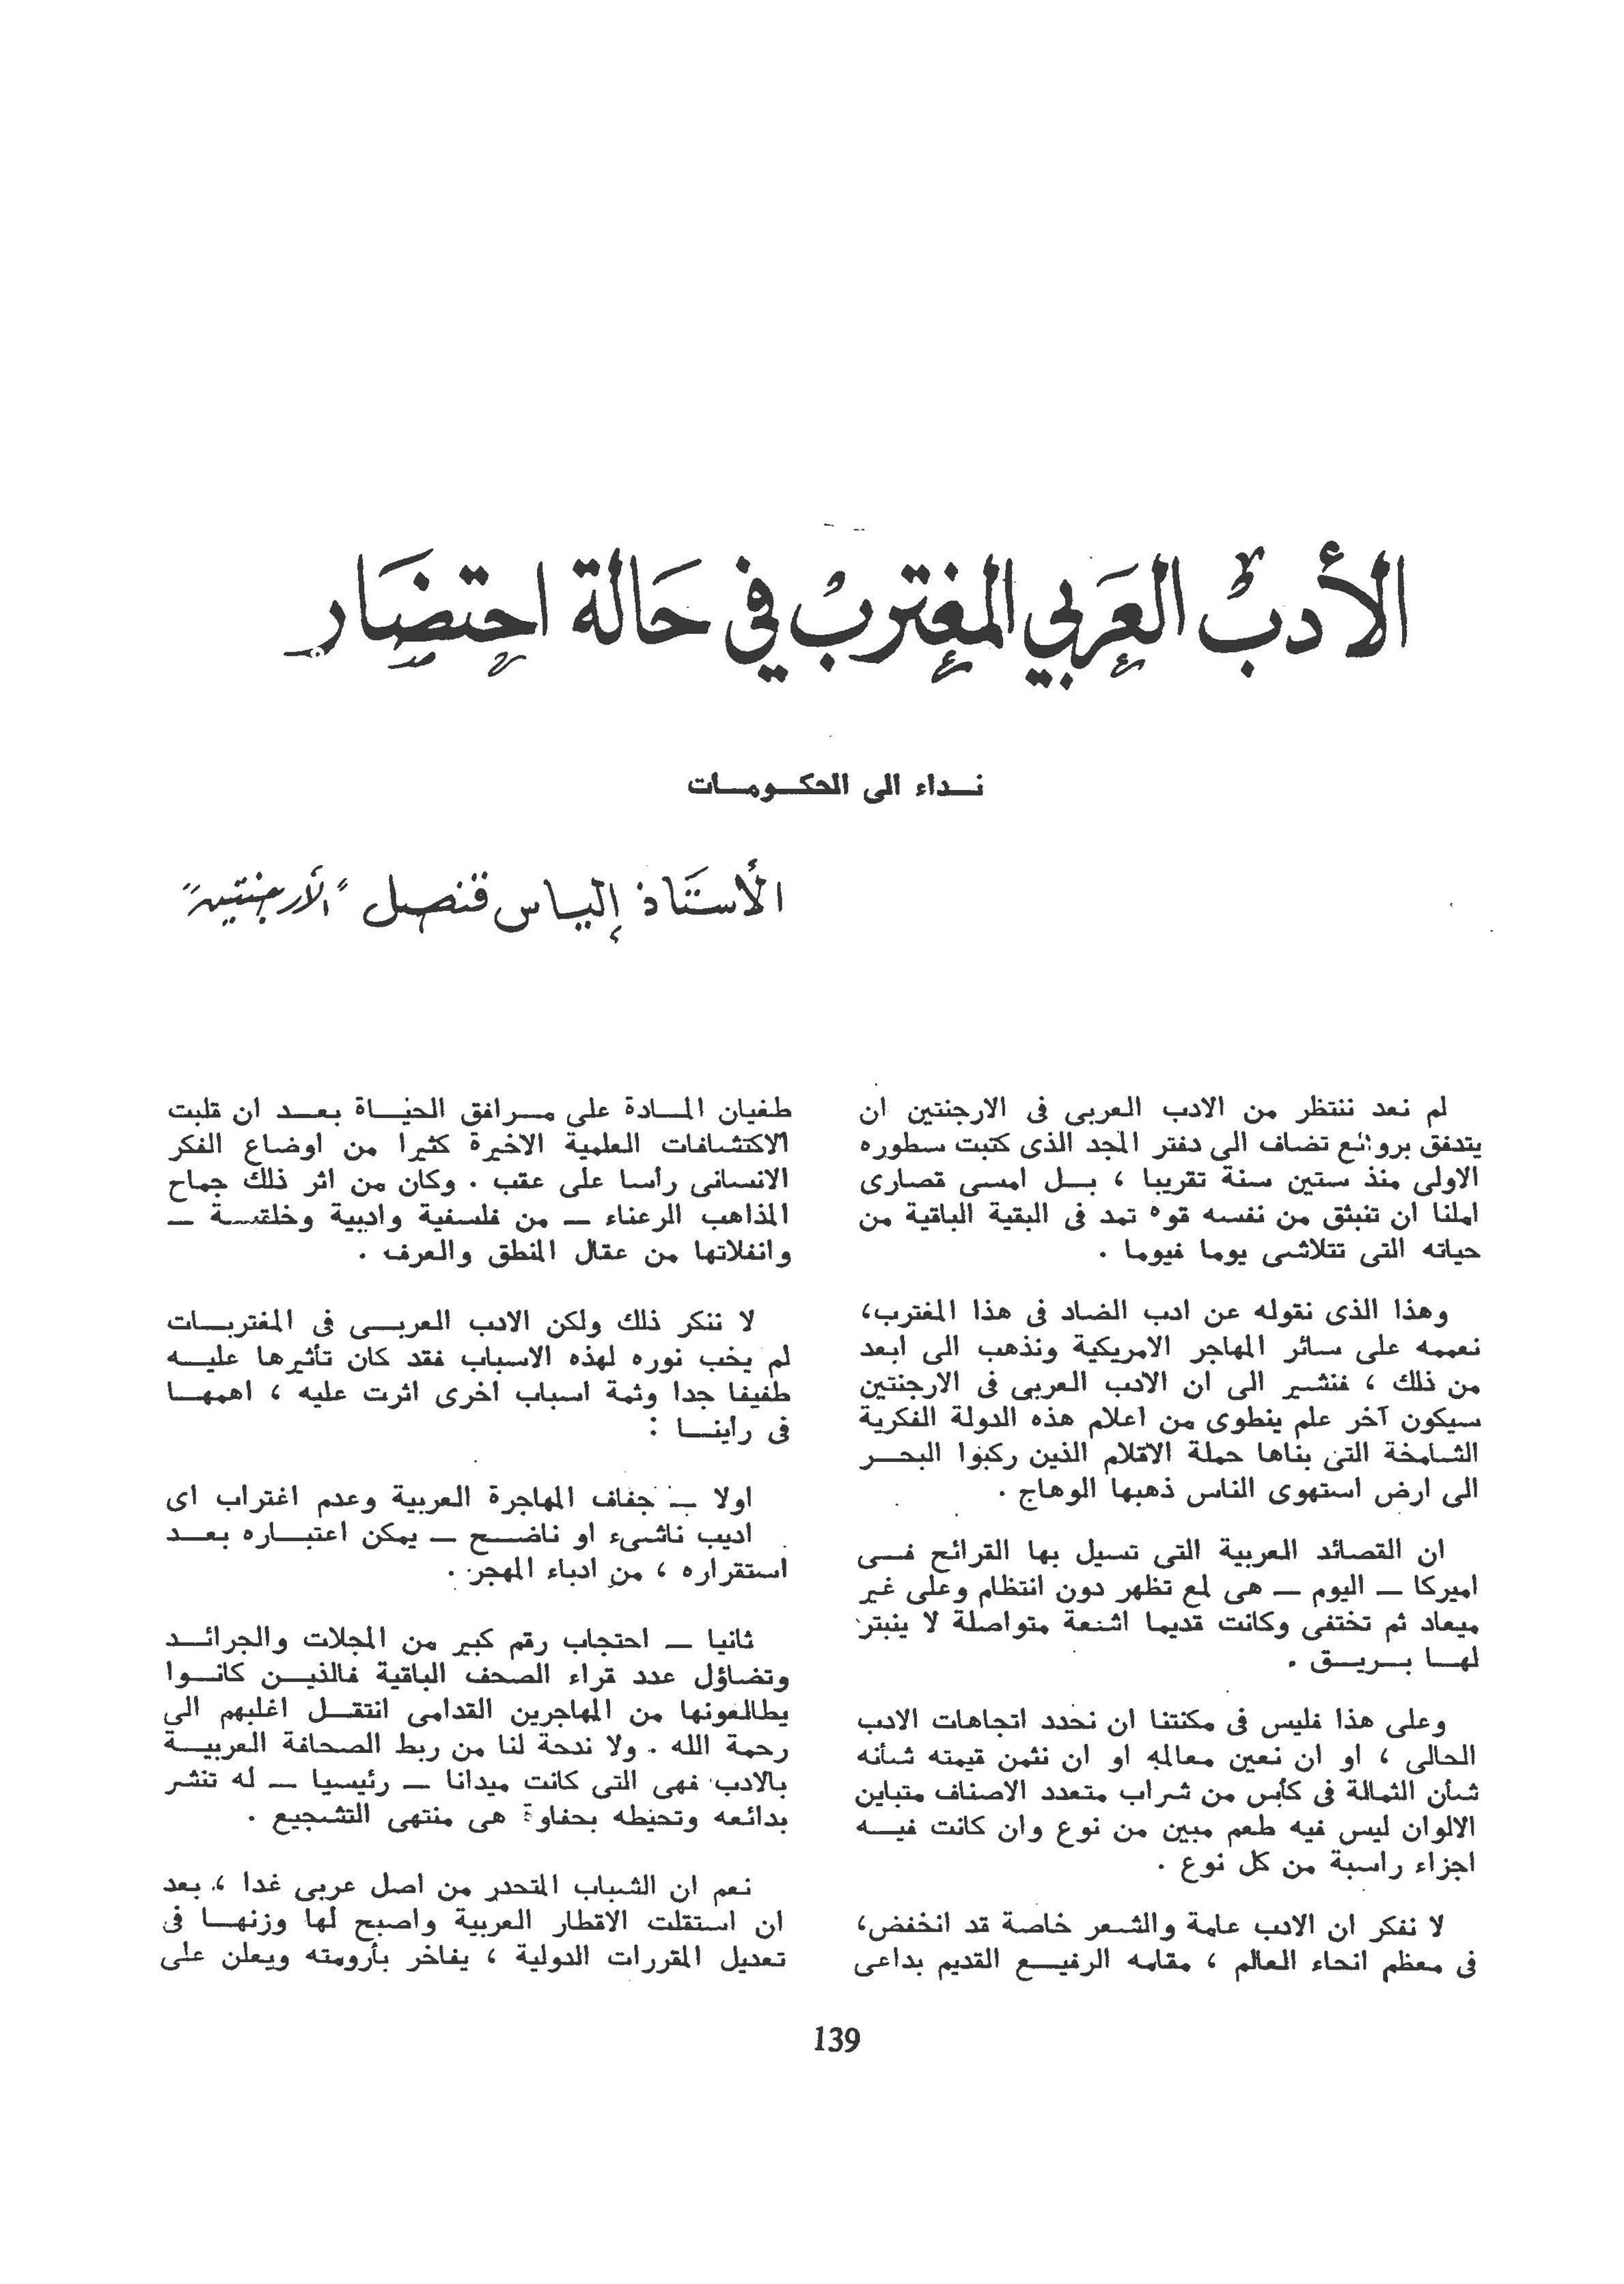 الأدب العربي المغترب في حالة احتضار
نداء الى الحكومات
الأستاذ إلياس قنصل "الأرجنتين"
لم نعد ننتظر من الادب العربى فى الارجنتين ان
يتدفق بروائع تضاف الى دفتر المجد الذى كتبت سطوره
الاولى منذ ستين سنة تقريبا ، بل امسى قصارى
املنا ان تنبثق من نفسه قوة تمد فى البقية الباقية من
حياته التى تتلاشى يوما فيوما .
وهذا الذى نقوله عن ادب الضاد فى هذا المغترب،
نعممه على سائر المهاجر الامريكية ونذهب الى ابعد
من ذلك ، فنشير الى ان الادب العربى فى الارجنتين
سيكون آخر علم ينطوى من اعلام هذه الدولة الفكرية
الشامخة التى بناها حملة الاقلام الذين ركبوا البحر
الى ارض استهوى الناس ذهبها الوهاج .
ان القصائد العربية التى تسيل بها القرائح فى
اميركا — اليوم — هى لمع تظهر دون انتظام وعلى غير
ميعاد ثم تختفى وكانت قديما اشعة متواصلة لا ينبتر
لها بريق .
وعلى هذا فليس فى مكنتنا ان نحدد اتجاهات الادب
الحالى ، او ان نعين معالمه او ان نثمن قيمته شأنه
شأن الثمالة فى كأس من شراب متعدد الاصناف متباين
الالوان ليس فيه طعم مبين من نوع وان كانت فيه
اجزاء راسبة من كل نوع .
لا نفكر ان الادب عامة والشعر خاصة قد انخفض،
فى معظم انحاء العالم ، مقامه الرفيع القديم بداعى
طغيان المادة على مرافق الحياة بعد ان قلبت
الاكتشافات العلمية الاخيرة كثيرا من اوضاع الفكر
الانسانى رأسا على عقب . وكان من اثر ذلك جماح
المذاهب الرعناء — من فلسفية وادبية وخلقية —
وانفلاتها من عقال المنطق والعرف .
لا ننكر ذلك ولكن الادب العربى فى المغتربات
لم يخب نوره لهذه الاسباب فقد كان تأثيرها عليه
طفيفا جدا وثمة اسباب اخرى اثرت عليه ، اهمها
فى رأينا :
اولا — جفاف المهاجرة العربية وعدم اغتراب اى
اديب ناشىء او ناضح — يمكن اعتباره بعد
استقراره ، من ادباء المهجر .
ثانيا — احتجاب رقم كبير من المجلات والجرائد
وتضاؤل عدد قراء الصحف الباقية فالذين كانوا
يطالعونها من المهاجرين القدامى انتقل اغلبهم الى
رحمة الله . ولا ندحة لنا من ربط الصحافة العربية
بالادب فهى التى كانت ميدانا — رئيسيا — له تنشر
بدائعه وتحيطه بحفاوة هى منتهى التشجيع .
نعم ان الشباب المتحدر من اصل عربى غدا ، بعد
ان استقلت الاقطار العربية واصبح لها وزنها فى
تعديل المقررات الدولية ، يفاخر بأرومته ويعلن على
139